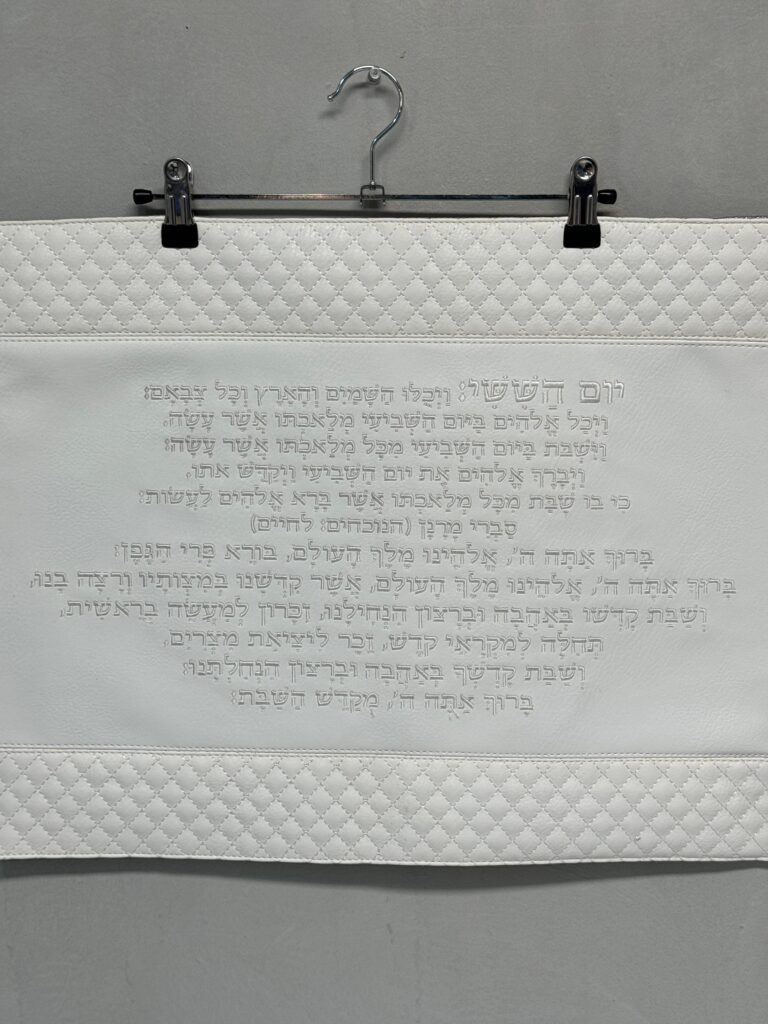 יוֹם הַשִּׁשִּׁי: וַיְכֻלּוּ הַשָּׁמַיִם וְהָאָרֶץ וְכָל צְבָאָם:
וַיְכַל אֱלֹהִים בַּיּוֹם הַשְּׁבִיעִי מְלַאכְתּוֹ אֲשֶׁר עָשָׂה,
וַיִּשְׁבֹּת בַּיּוֹם הַשְּׁבִיעִי מִכָּל מְלַאכְתּוֹ אֲשֶׁר עָשָׂה:
וַיְבָרֶךְ אֱלֹהִים אֶת יוֹם הַשְּׁבִיעִי וַיְקַדֵּשׁ אֹתוֹ,
כִּי בוֹ שָׁבַת מִכָּל מְלַאכְתּוֹ אֲשֶׁר בָּרָא אֱלֹהִים לַעֲשׂוֹת:
סַבְרִי מָרָנָן (הנוכחים: לחיים)
בָּרוּךְ אַתָּה ה', אֱלֹהֵינוּ מֶלֶךְ הָעוֹלָם, בּוֹרֵא פְּרִי הַגֶּפֶן:
בָּרוּךְ אַתָּה ה', אֱלֹהֵינוּ מֶלֶךְ הָעוֹלָם, אֲשֶׁר קִדְּשָׁנוּ בְּמִצְוֹתָיו וְרָצָה בָנוּ,
וְשַׁבַּת קָדְשׁוֹ בְּאַהֲבָה וּבְרָצוֹן הִנְחִילָנוּ, זִכָּרוֹן לְמַעֲשֵׂה בְרֵאשִׁית,
תְּחִלָּה לְמִקְרָאֵי קֹדֶשׁ, זֵכֶר לִיצִיאַת מִצְרָיִם,
וְשַׁבַּת קָדְשְׁךָ בְּאַהֲבָה וּבְרָצוֹן הִנְחַלְתָּנוּ:
בָּרוּךְ אַתָּה ה', מְקַדֵּשׁ הַשַּׁבָּת: